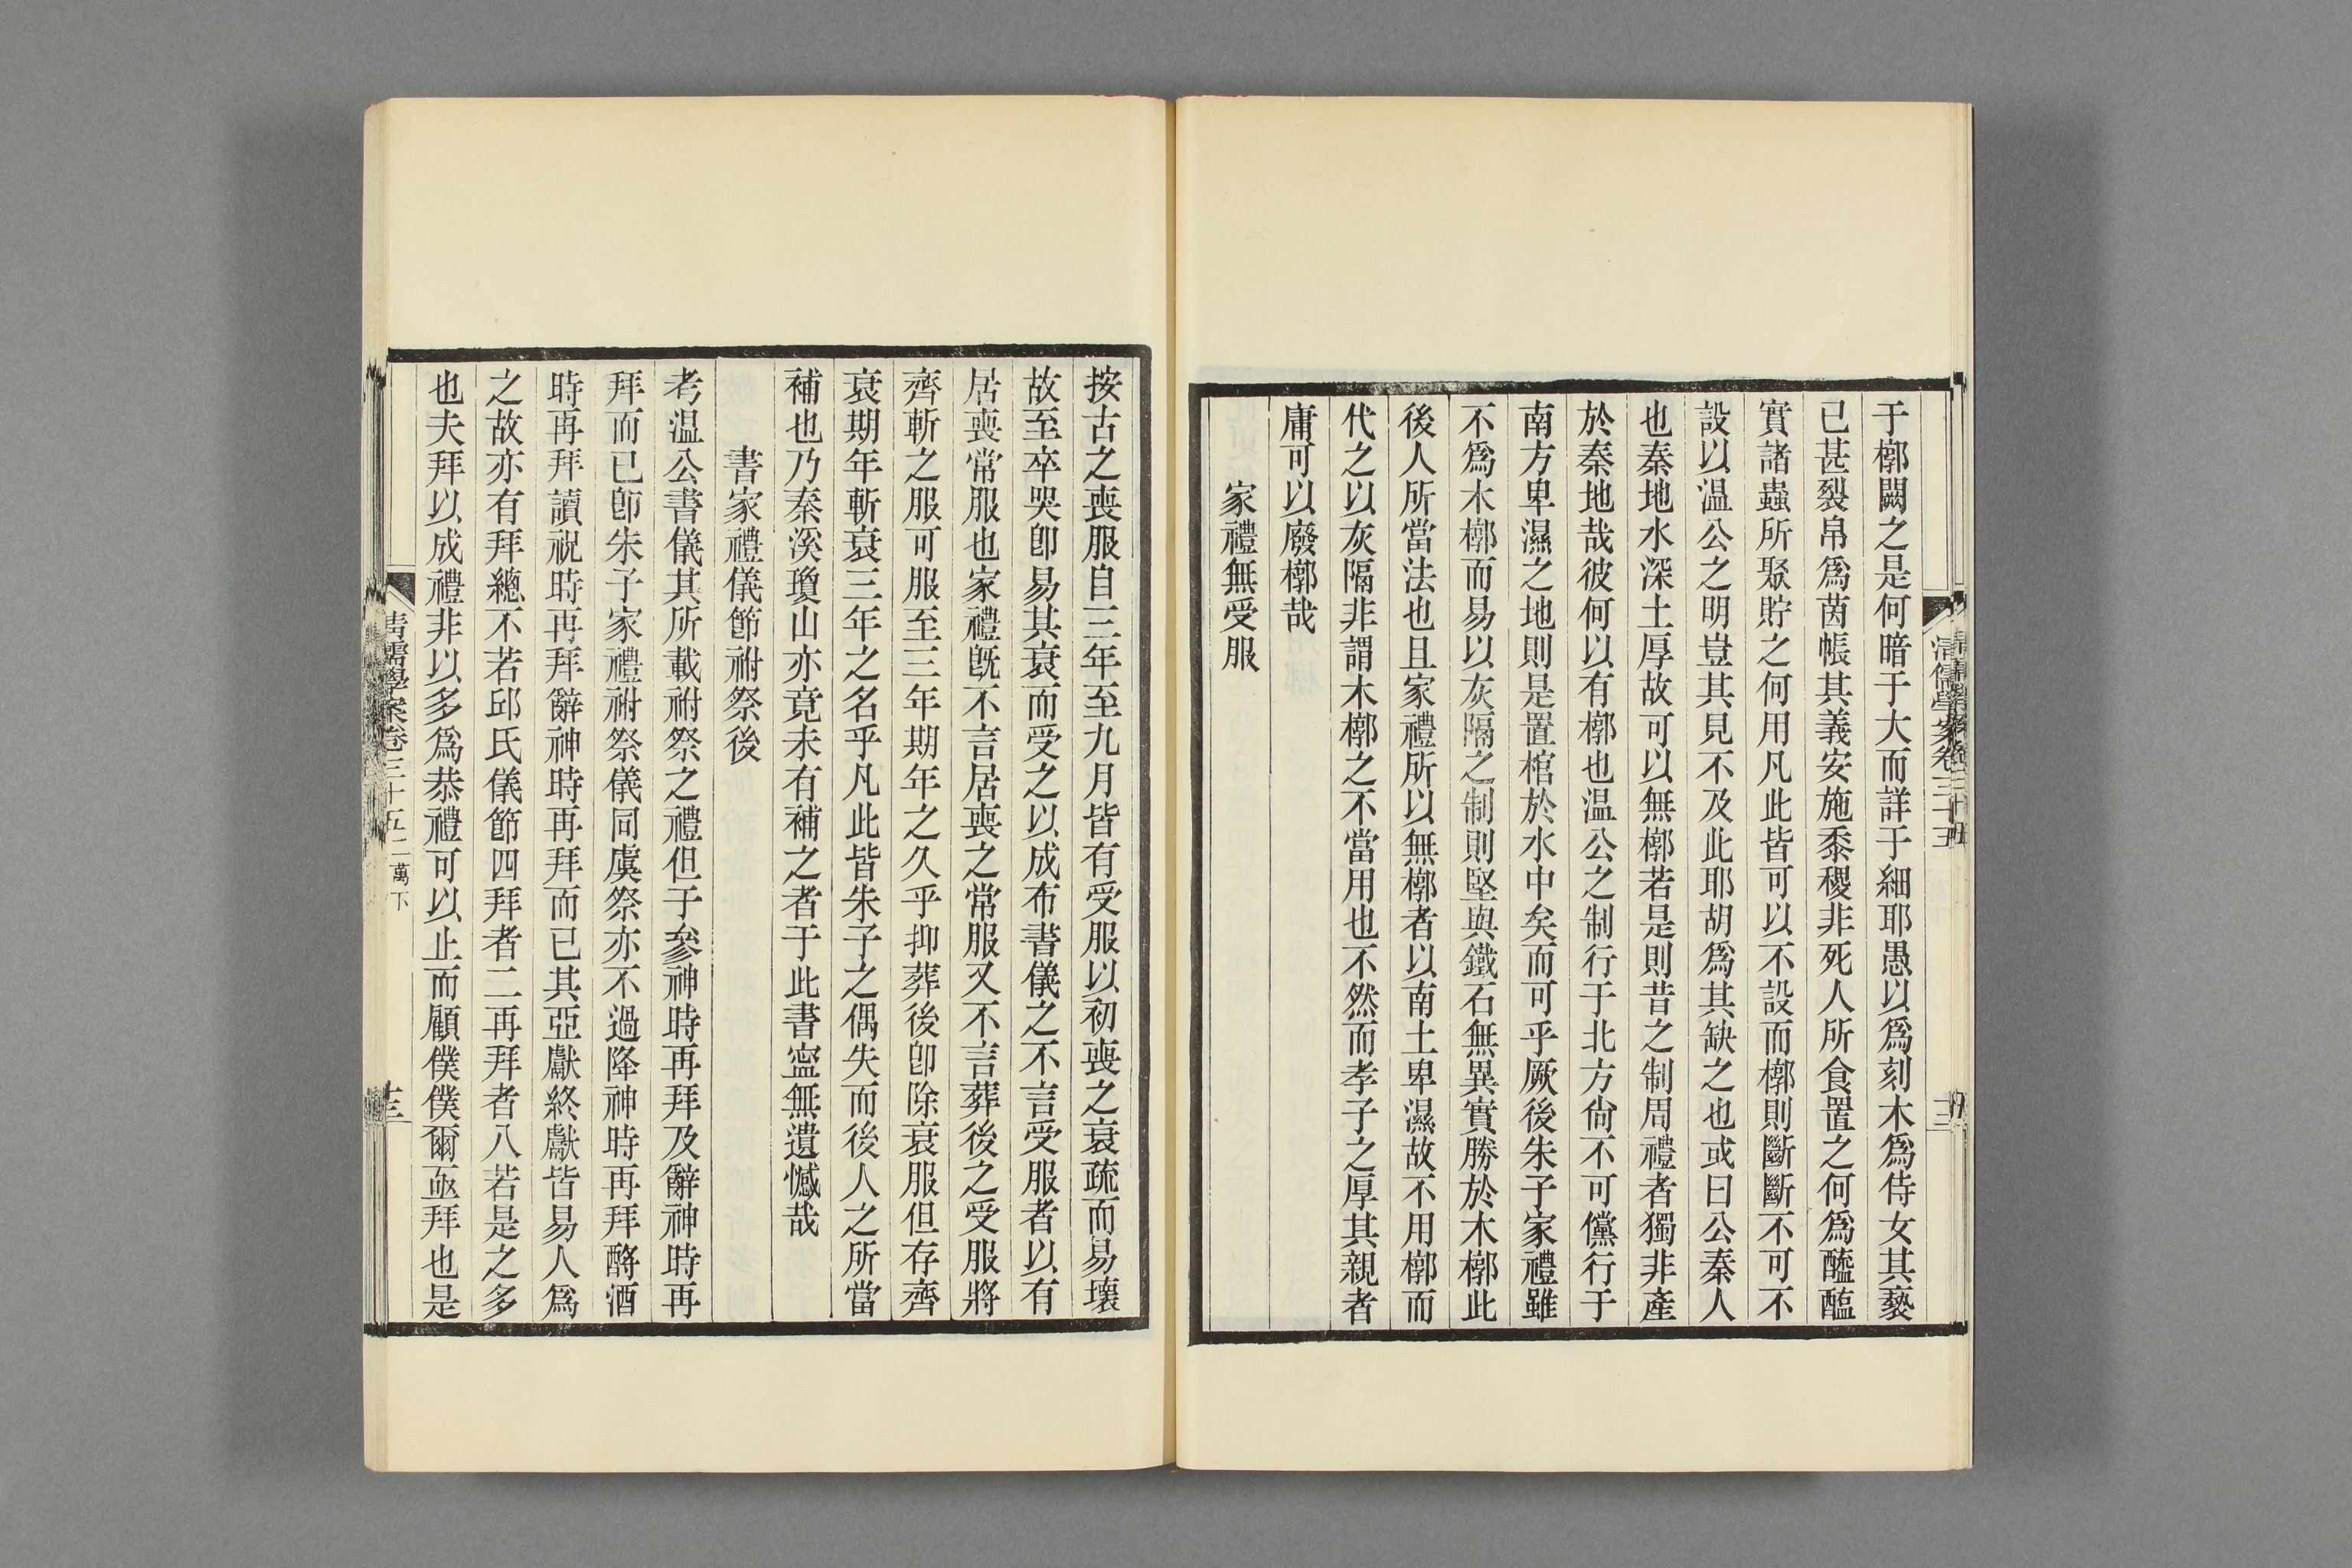 于槨闕之是何暗于大而詳于細耶愚以爲刻木爲侍女其褻
已甚裂帛爲茵帳其義安施黍稷非死人所食置之何爲醯醢
實諸蟲所聚貯之何用凡此皆可以不設而槨則斷斷不可不
設以温公之明豈其見不及此耶胡爲其缺之也或曰公秦人
也秦地水深土厚故可以無槨若是則昔之制周禮者獨非產
於秦地哉彼何以有槨也温公之制行于北方尙不可儻行于
南方卑濕之地則是置棺於水中矣而可乎厥後朱子家禮雖
不爲木槨而易以灰隔之制則堅與鐵石無異實勝於木槨此
後人所當法也且家禮所以無槨者以南土卑濕故不用槨而
代之以灰隔非謂木槨之不當用也不然而孝子之厚其親者
庸可以廢槨哉
家禮無受服
按古之喪服自三年至九月皆有受服以初喪之衰疏而易壞
故至卒哭卽易其衰而受之以成布書儀之不言受服者以有
居喪常服也家禮旣不言居喪之常服又不言葬後之受服將
齊斬之服可服至三年期年之久乎抑葬後卽除衰服但存齊
衰期年斬衰三年之名乎凡此皆朱子之偶失而後人之所當
補也乃秦溪瓊山亦竟未有補之者于此書寍無遺憾哉
書家禮儀節祔祭後
考温公書儀其所載祔祭之禮但于參神時再拜及辭神時再
拜而已卽朱子家禮祔祭儀同虞祭亦不過降神時再拜酹酒
時再拜讀祝時再拜辭神時再拜而已其亞獻終獻皆易人爲
之故亦有拜總不若邱氏儀節四拜者二再拜者八若是之多
也夫拜以成禮非以多爲恭禮可以止而顧僕僕爾亟拜也是
清儒學案卷三十五 二萬下